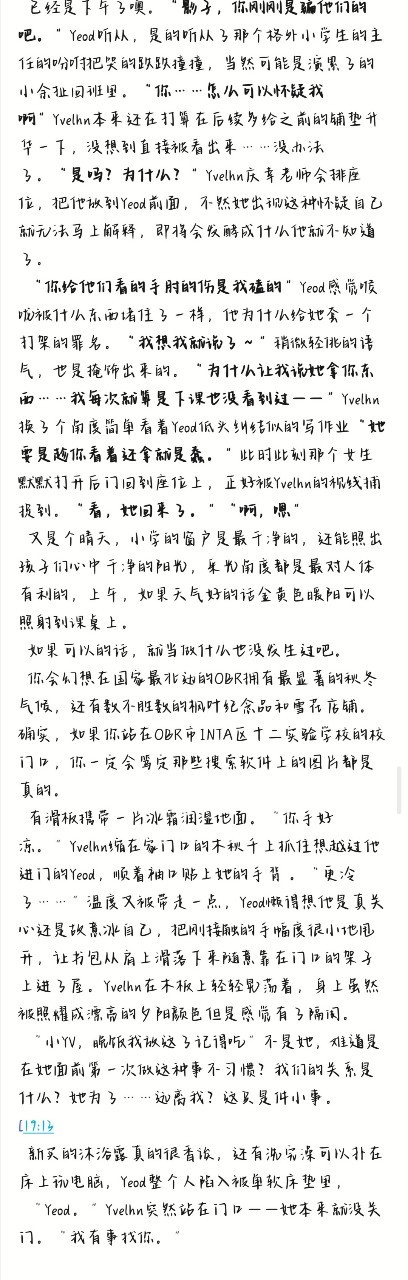 已经是下午了噢。“影子，你刚刚是骗他们的
吧。”Yeod听从，是的听从了那个格外小学生的主
任的吩咐把哭的跌跌撞撞，当然可能是演累了的
小余扯回班里。“你……怎么可以怀疑我
啊”Yvelhn本来还在打算在后续多给之前的铺垫升
华一下，没想到直接被看出来……没办法
了。“是吗？为什么？”Yvelhn庆幸老师会排座
位，把他放到Yeod前面，不然她出现这种怀疑自己
就无法马上解释，即将会发酵成什么他就不知道
了。
“你给他们看的手肘的伤是我磕的”Yeod感觉喉
咙被什么东西堵住了一样，他为什么给她套一个
打架的罪名。“我想我就说了～”稍微轻佻的语
气，也是掩饰出来的。“为什么让我说她拿你东
西……我每次就算是下课也没看到过——”Yvelhn
换了个角度简单看着Yeod低头纠结似的写作业“她
要是趁你看着还拿就是蠢。”此时此刻那个女生
默默打开后门回到座位上，正好被Yvelhn的视线捕
捉到。“看，她回来了。”“啊，嗯”
又是个晴天，小学的窗户是最干净的，还能照出
孩子们心中干净的阳光，采光角度都是最对人体
有利的，上午，如果天气好的话金黄色暖阳可以
照射到课桌上。
如果可以的话，就当做什么也没发生过吧。
你会幻想在国家最北边的OBR拥有最显著的秋冬
气候，还有数不胜数的枫叶纪念品和雪花店铺。
确实，如果你站在OBR市INTA区十二实验学校的校
门口，你一定会笃定那些搜索软件上的图片都是
真的。
有滑板携带一片冰霜润湿地面。“你手好
凉。”Yvelhn缩在家门口的木秋千上抓住想越过他
进门的Yeod，顺着袖口贴上她的手背。“更冷
了……”温度又被带走一点，Yeod懒得想他是真关
心还是故意冰自己，把刚接触的手幅度很小地甩
开，让书包从肩上滑落下来随意靠在门口的架子
上进了屋。Yvelhn在木板上轻轻晃荡着，身上虽然
被照耀成漂亮的夕阳颜色但是感觉有了隔阂。
“小YV，晚饭我放这了记得吃”不是她，难道是
在她面前第一次做这种事不习惯？我们的关系是
什么？她为了……远离我？这只是件小事。
[19:13
新买的沐浴露真的很香诶，还有洗完澡可以扑在
床上玩电脑，Yeod整个人陷入被单软床垫里，
“Yeod。”Yvelhn突然站在门口——她本来就没关
门。“我有事找你。”